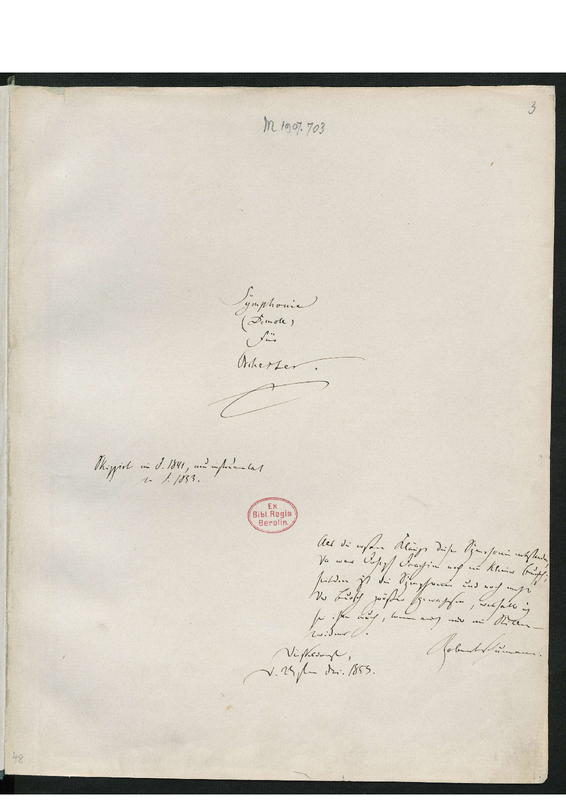 3
M 1907.703
Symphonie
(D moll)
für
Orchester.
Skizzirt im J. 1841, neu instrumentirt
im J. 1853.
Ex
Bibl. Regia
Berolin.
Als die ersten Klänge dieser Symphonie entstanden,
da war Joseph Joachim noch ein kleiner Bursch;
seitdem ist die Symphonie und noch mehr
der Bursch größer gewachsen, weshalb ich
sie ihm auch, wenn auch nur im Stillen —
widme.
Robert Schumann.
Düsseldorf,
d. 1853.
48